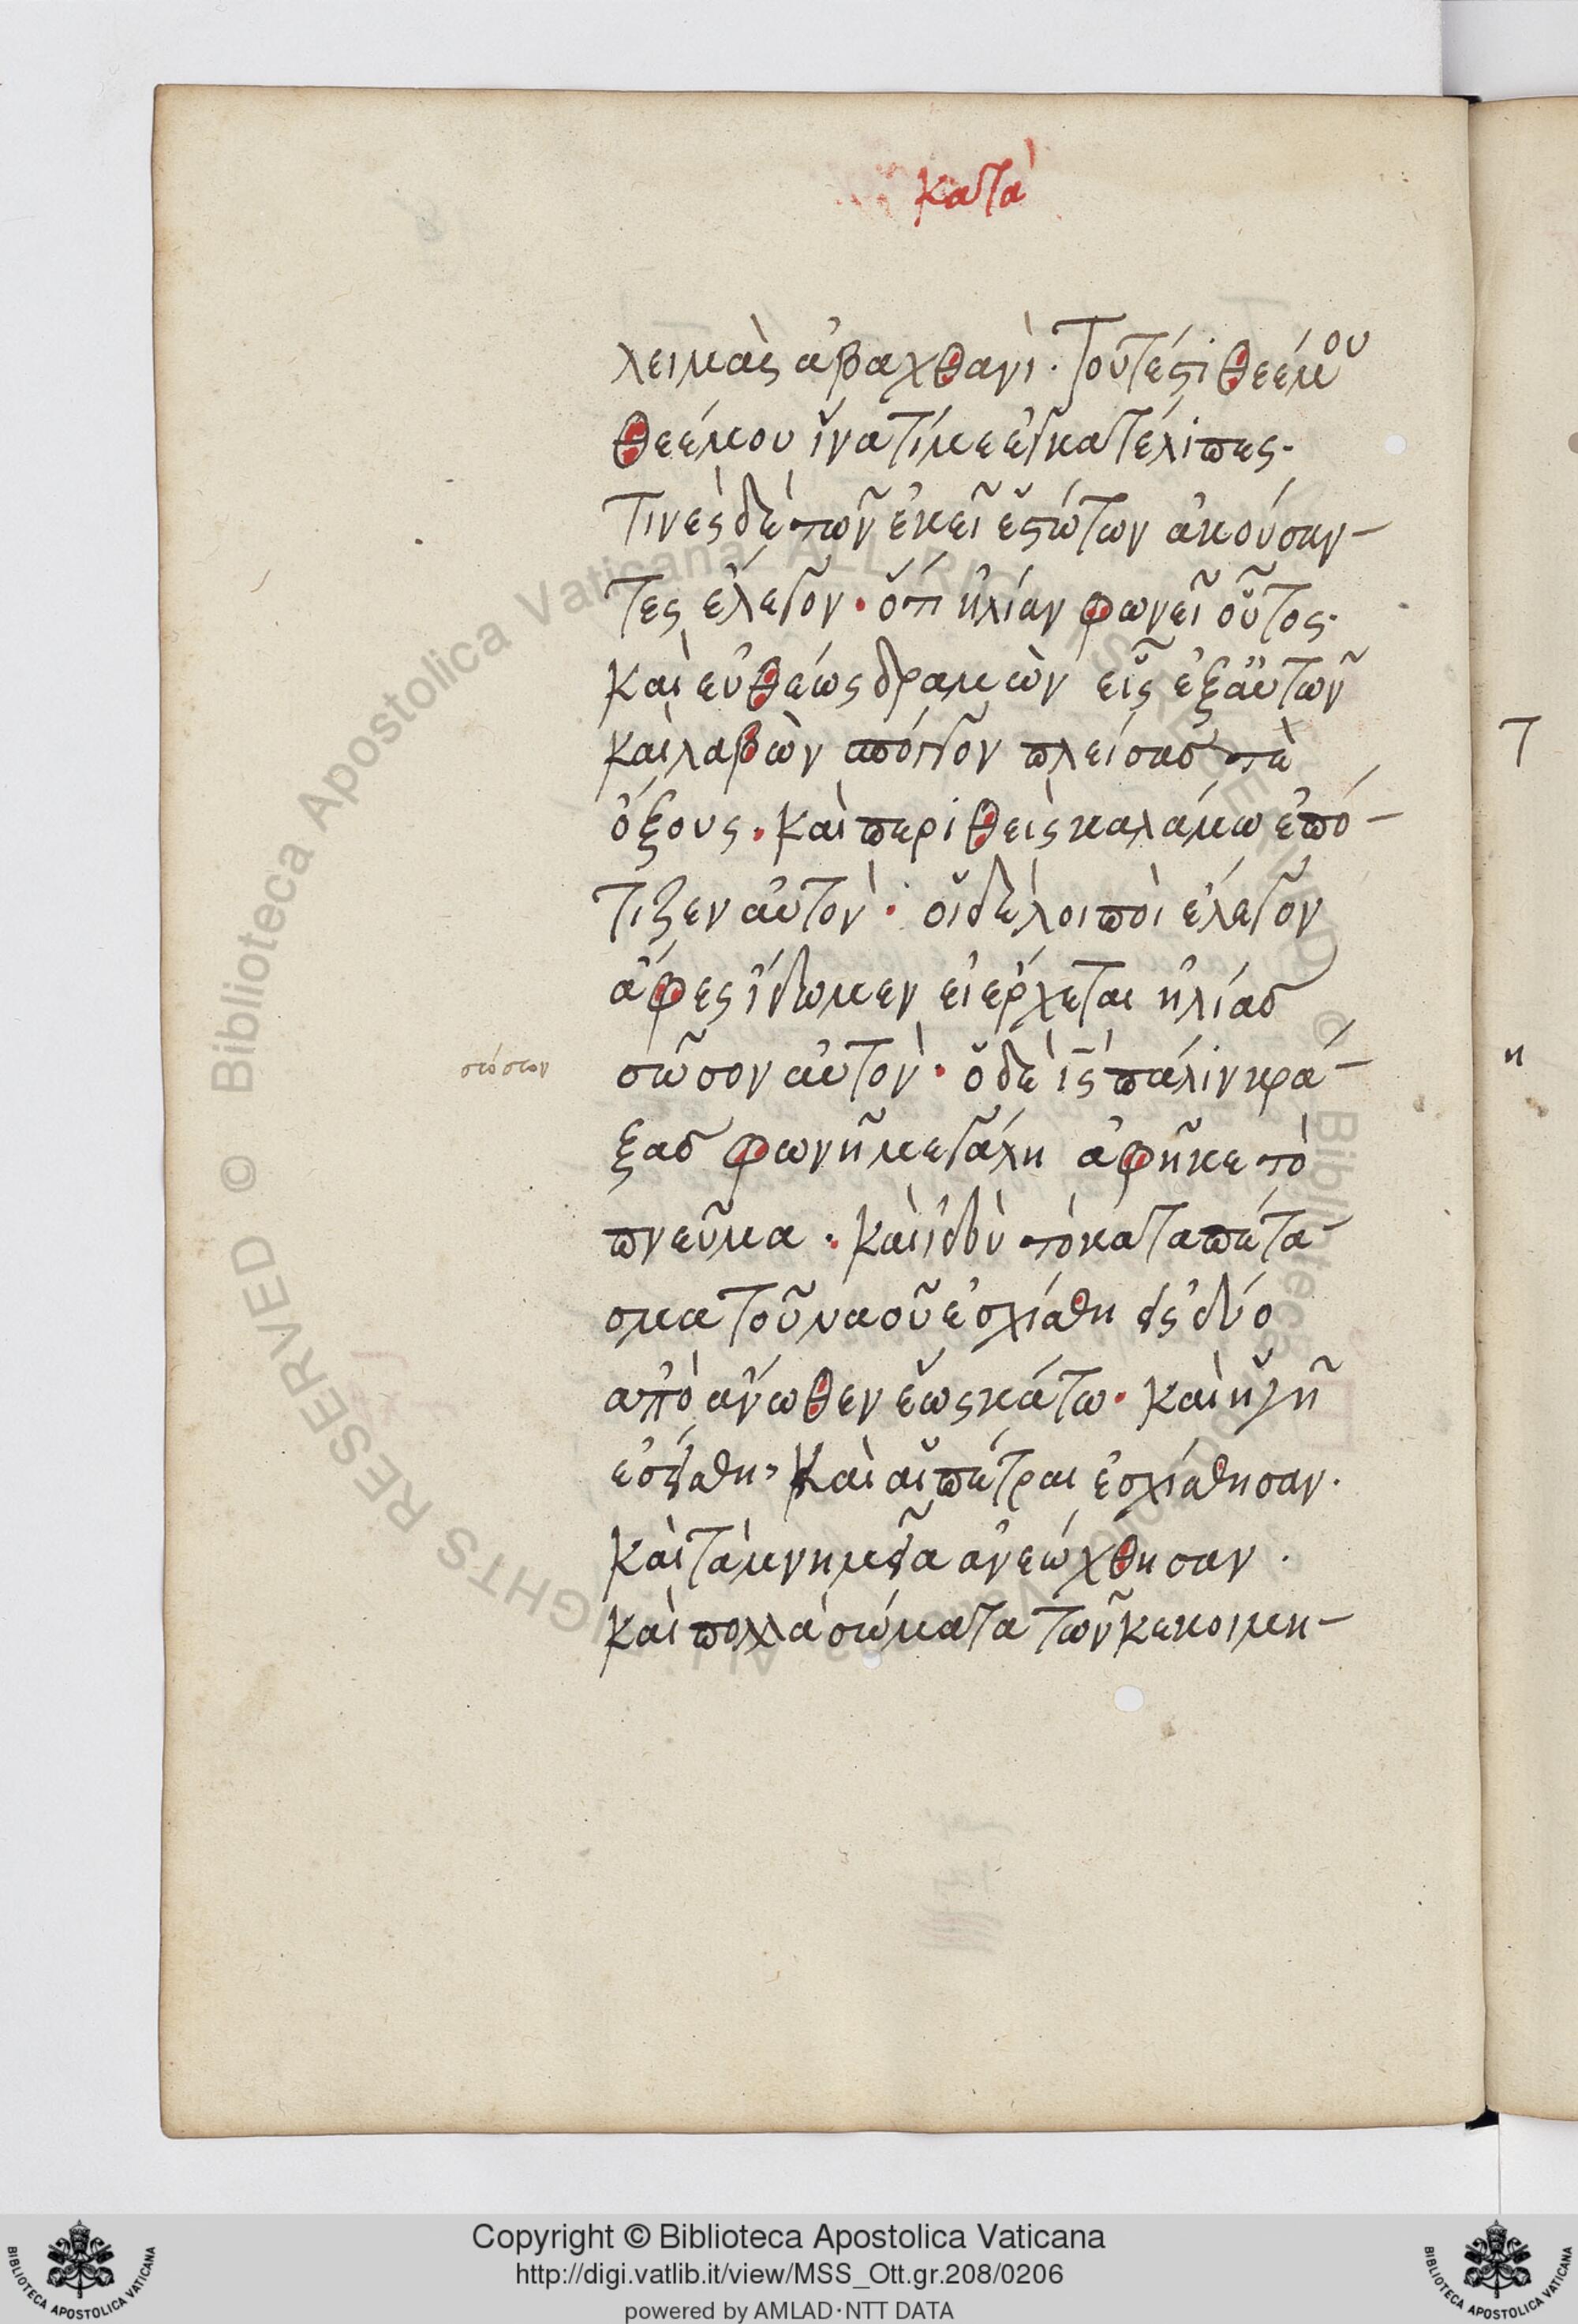 κατὰ
λειμὰς ἀβαχθανὶ· Τοῦτέστι θεέμου
θεέμου ἵνατίμεἐγκατέλιπες·
Τινὲς δὲ τῶν ἐκεῖ ἑστώτων ἀκούσαν-
τες ἔλεγον· ὅτι ἠλίαν φωνεῖ οὗτος·
καὶ εὐθέως δραμὼν εἷς ἐξ αὐτῶν
καὶ λαβὼν σπόγγον πλείσας τὲ
ὄξους· καὶ περιθεὶς καλάμω ἐπό-
τιζεν αὐτὸν· οἱ δὲ λοιποὶ ἔλεγον
ἄφες ἴδωμεν εἰ ἔρχεται ἠλίας
σῶσον αὐτὸν· ὁ δὲ ις πάλιν κρά-
ξας φωνῆ μεγάλη ἀφῆκε τὸ
πνεῦμα· καὶ ἰδοὺ τὸ καταπέτα-
σμα τοῦ ναοῦ ἐσχίσθη εἰς δύο
ἀπὸ ἄνωθεν ἕως κάτω· καὶ ἡ γῆ
ἐσείσθη, καὶ αἱ πέτραι ἐσχίσθησαν·
καὶ τὰ μνημεῖα ἀνεώχθησαν·
καὶ πολλὰ σώματα τῶν κεκοιμη-
Τ
η
Biblioteca Apostolica Vaticana ALL RIGHTS RESERVED © Biblioteca Apostolica Vaticana ALL RIGHTS RESERVED ©
Copyright © Biblioteca Apostolica Vaticana
http://digi.vatlib.it/view/MSS_Ott.gr.208/0206
powered by AMLAD·NTT DATA
BIBLIOTECA APOSTOLICA VATICANA
BIBLIOTECA APOSTOLICA VATICANA